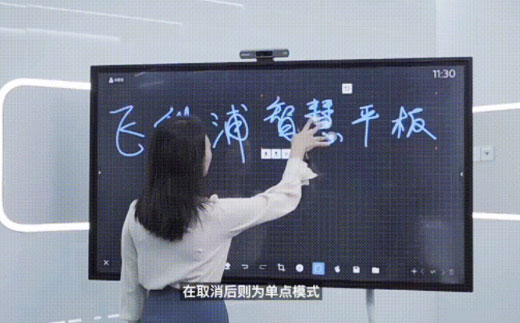 11:30
飞利浦智慧平板
在取消后则为单点模式